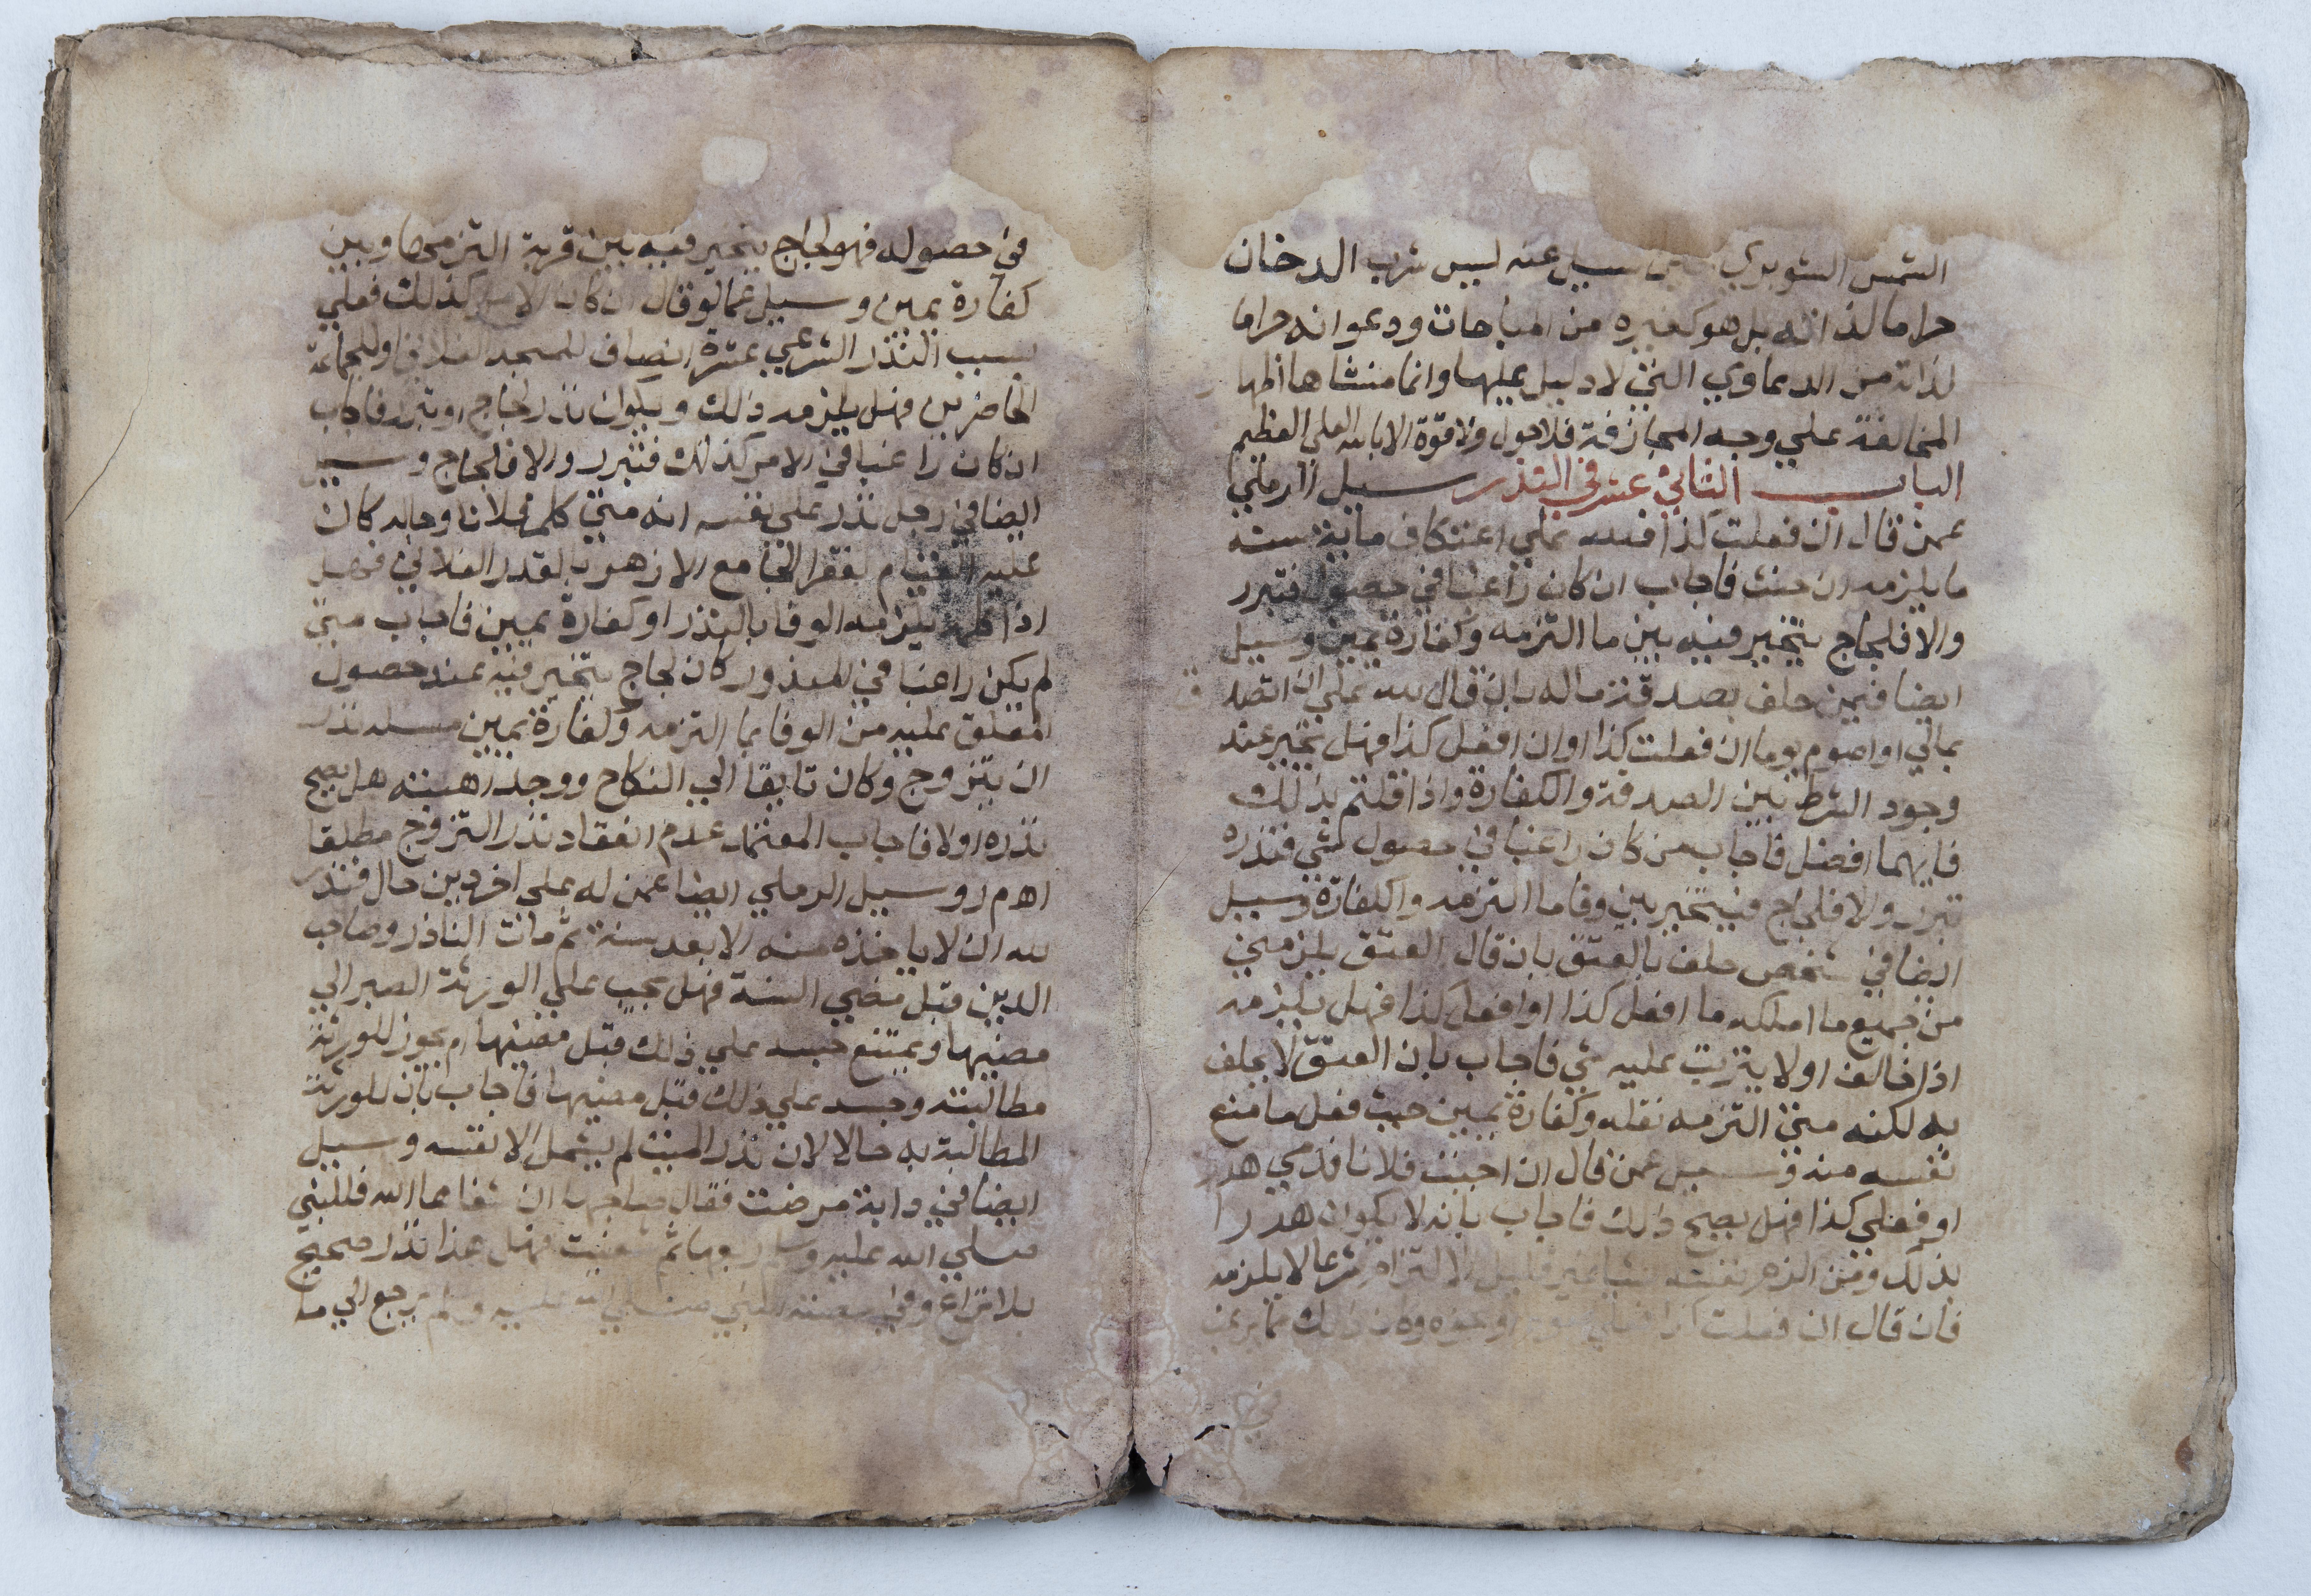 الشمس الشوبري حين سيل عنه ليس شرب الدخان
حراما لذاته بل هو كغيره من المباحات ودعوا انه حراما
لذاته من الدعاوي التي لا دليل عليها وانما منشاها اظهار
المخالفة علي وجه المجازفة فلا حول ولا قوة الا بالله العلي العظيم
الباب الثاني عشر في النذر سيل الرملي
عمن قال ان فعلت كذا فلله علي اعتكاف ماية سنة
ما يلزمه ان حنث فاجاب ان كان راغبا في حصوله فتبرر
والا فلجاج يتخير فيه بين ما التزمه وكفارة يمين وسيل
ايضا فيمن حلف بصدقة ماله بان قال لله علي ان اتصدق
بمالي او اصوم يوما ان فعلت كذا او ان افعل كذا فهل تخير عند
وجود الشرط بين الصدقة والكفارة واذا قلتم بذلك
فايهما افضل فاجاب من كان راغبا في حصول شي فنذره
تبرر والا فلجاج فيتخير بين وفا ما التزمه والكفارة وسيل
ايضا في شخص حلف بالعتق بان قال العتق يلزمني
من جميع ما املكه ما افعل كذا او افعل كذا فهل يلزمه
اذا خالف اولا يترتب عليه شي فاجاب بان العتق لا يحلف
به لكنه متي التزمه نقله وكفارة يمين حيث فعل ما منع
نفسه منه وسيل عمن قال ان احببت فلانا فدمي هدر
او فعلي كذا فهل يصح ذلك فاجاب بانه لا يكون هدرا
بذلك ومن الزم نفسه شيا غير قابل الالتزام شرعا لا يلزمه
فان قال ان فعلت كذا ونحوه وكان ذلك مما يرغب
في حصوله فهو لجاج يتخير فيه بين قربة التزمها وبين
كفارة يمين وسيل عما لو قال ان كان الامر كذلك فعلي
بسبب النذر الشرعي عشرة انصاف للمسجد الفلاني او للجماعة
الحاضرين فهل يلزمه ذلك ويكون نذر لجاج او تبرر فاجاب
ان كان راغبا في الامر كذلك فتبرر والا فلجاج وسيل
ايضا في رجل نذر علي نفسه انه متي كلم فلانا وجابه كان
عليه القيام لفقرا الجامع الازهر بالقدر الفلاني فهل
اذا كلمه يلزمه الوفا بالنذر او كفارة يمين فاجاب متي
لم يكن راغبا في المنذور كان لجاج يتخير فيه عند حصول
المعلق عليه من الوفا بما التزمه وكفارة يمين مسله نذر
ان يتزوج وكان تايقا الي النكاح ووجد اهبته هل يصح
نذره اولا فاجاب المعتمد عدم انعقاد نذر التزوج مطلقا
اه م ر وسيل الرملي ايضا عمن له علي اخر دين حال فنذر
لله ان لا ياخذه منه الا بعد سنة ثم مات الناذر وصاحب
الدين قبل مضي السنة فهل يجب علي الورثة الصبر الي
مضيها ويمتنع حبسه علي ذلك قبل مضيها ام يجوز للورثة
مطالبته وحبسه علي ذلك قبل مضيها فاجاب بان للورثة
المطالبة به حالا لان نذر الميت لم يشمل الا نفسه وسيل
ايضا في دابة مرضت فقال صاحبها ان شفاها الله فللنبي
صلي الله عليه وسلم ربعها ثم شفيت فهل هذا نذر صحيح
بلا نزاع وفي النبي صلي الله عليه وسلم يرجع الي ما